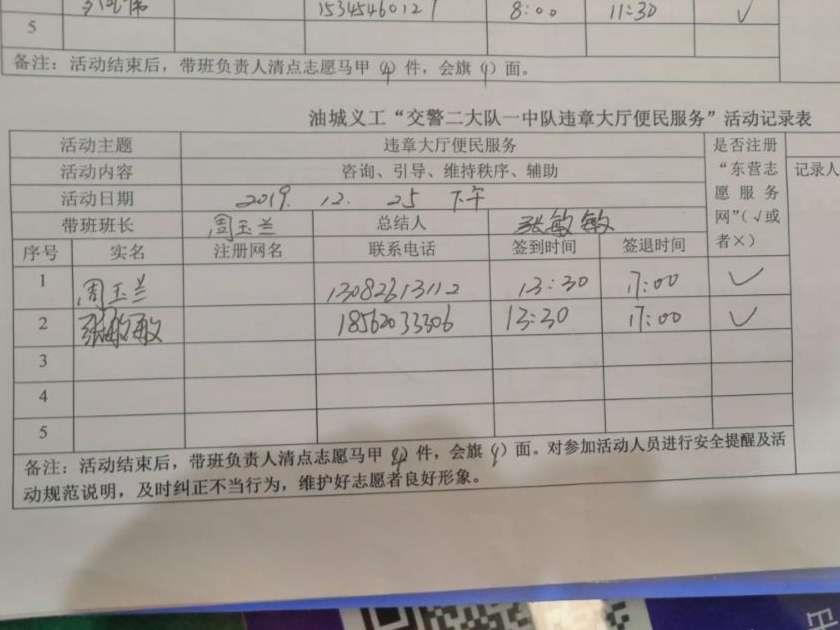 1534546012 8:00 11:30 √
5
备注：活动结束后，带班负责人清点志愿马甲（4）件，会旗（1）面。
油城义工“交警二大队一中队违章大厅便民服务”活动记录表
活动主题 违章大厅便民服务 是否注册
活动内容 咨询、引导、维持秩序、辅助 “东营志 记录人
活动日期 2019. 12. 25 下午 愿服务
带班班长 周玉兰 总结人 张敏敏 网”（√或
序号 实名 注册网名 联系电话 签到时间 签退时间 者×）
1 周玉兰 13082613112 13:30 17:00 √
2 张敏敏 18562033306 13:30 17:00 √
3
4
5
备注：活动结束后，带班负责人清点志愿马甲（4）件，会旗（1）面。对参加活动人员进行安全提醒及活
动规范说明，及时纠正不当行为，维护好志愿者良好形象。